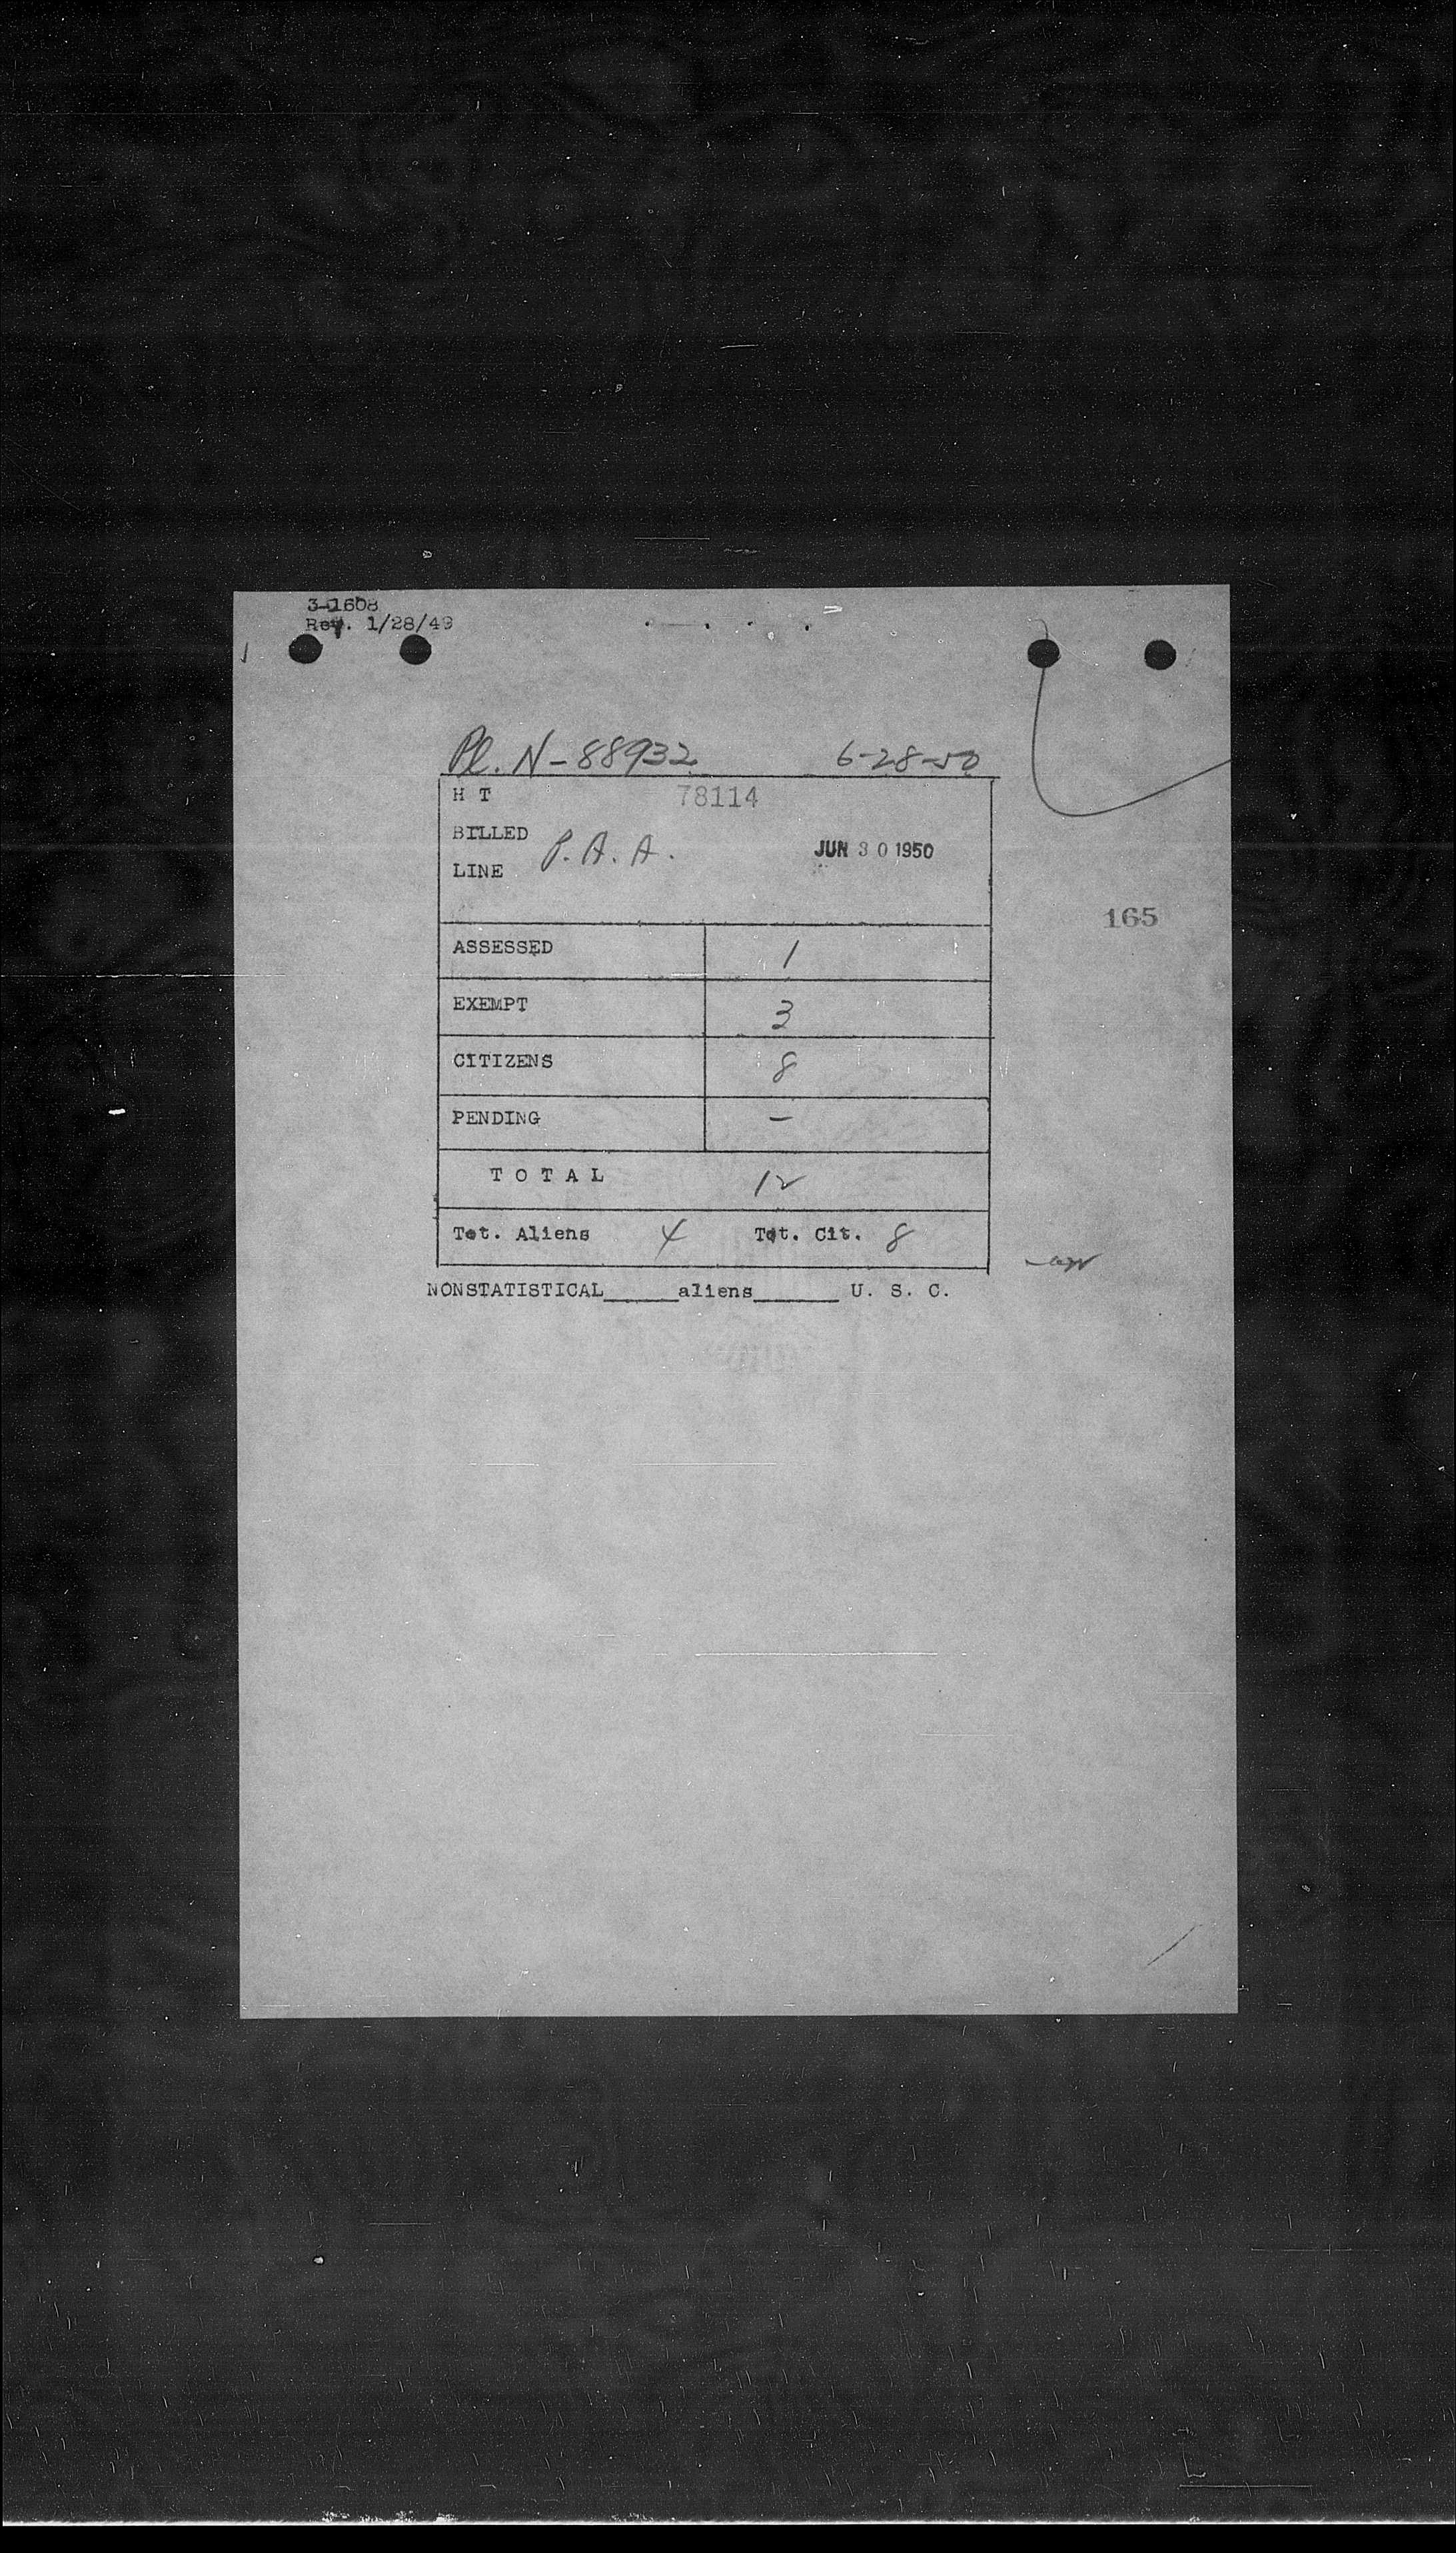 3-1608
Rev. 1/28/49
Pl. N-88932 6-28-50
H T 78114
BILLED
P. A. A. JUN 30 1950
LINE
165
ASSESSED 1
EXEMPT 3
CITIZENS 8
PENDING -
T O T A L 12
Tot. Aliens 4 Tot. Cit. 8
NONSTATISTICAL______aliens_______ U. S. C.